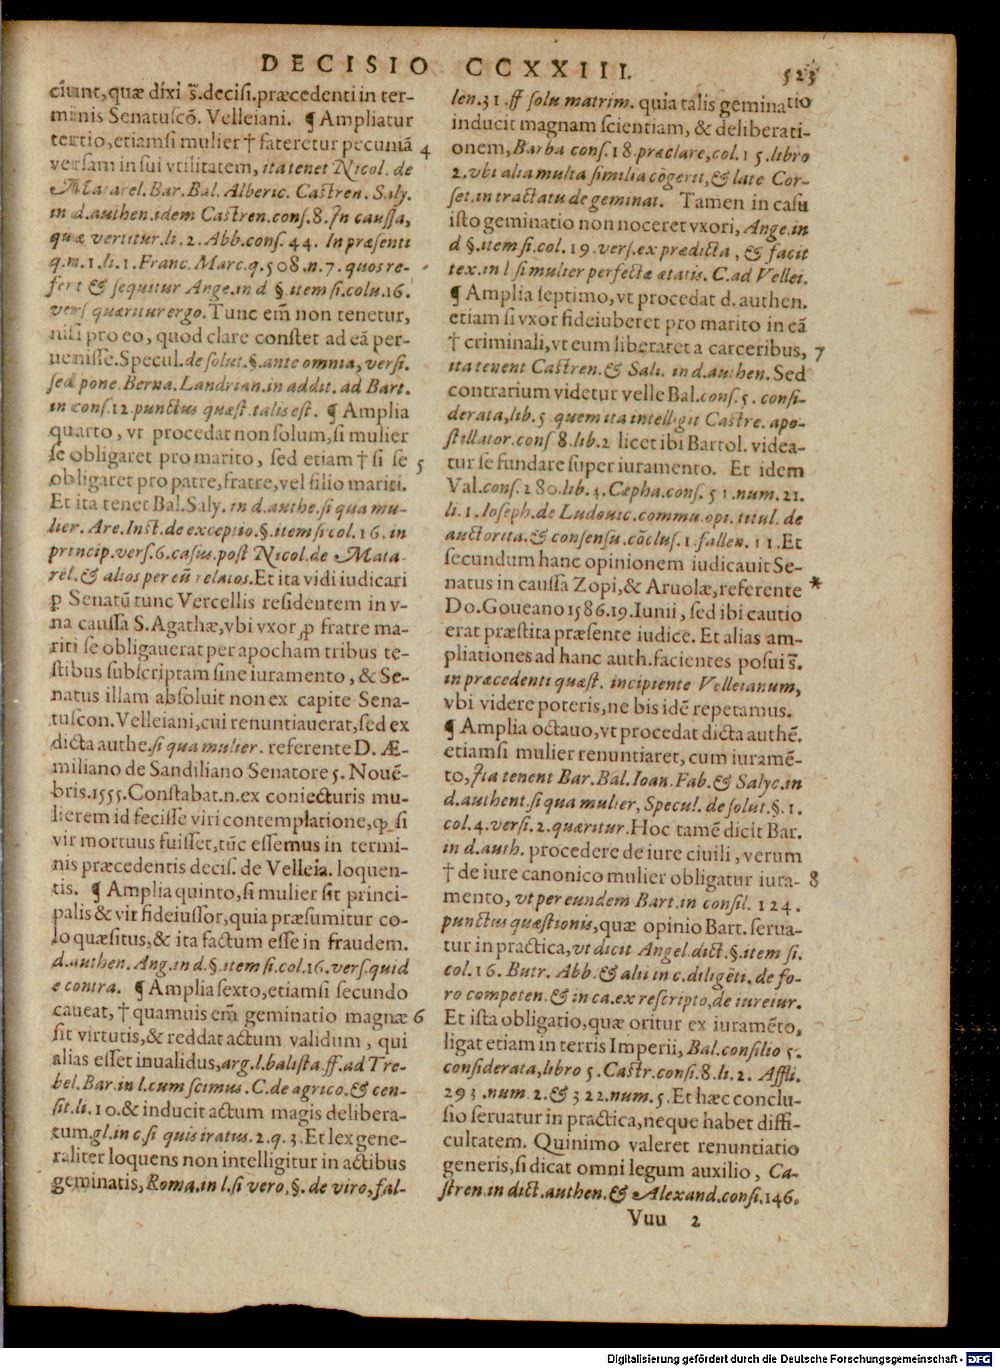 DECISIO CCXXIII. 523
ciunt, quæ dixi s̃. decisi. præcedenti in ter-
minis Senatuscõ. Velleiani. ¶ Ampliatur
tertio, etiamsi mulier † fateretur pecuniã 4
versam in sui vtilitatem, ita tenet Nicol. de
Matarel. Bar. Bal. Alberic. Castren. Saly.
in d. authen. idem Castren. cons. 8. In caussa,
quæ vertitur. li. 2. Abb. cons. 44. In præsenti
q. m. 1. li. 1. Franc. Marc. q. 508. n. 7. quos re-
fert & sequitur Ange. in d §. item si. colu. 16.
vers quæritur ergo. Tunc em̃ non tenetur,
nisi pro eo, quod clare constet ad eã per-
uenisse. Specul. de solut. §. ante omnia, versi.
sed pone. Berna. Landrian. in addit. ad Bart.
in cons. 12. punctus quæst. talis est. ¶ Amplia
quarto, vt procedat non solum, si mulier
se obligaret pro marito, sed etiam † si se 5
obligaret pro patre, fratre, vel filio mariti.
Et ita tenet Bal. Saly. in d. authe. si qua mu-
lier. Are. Inst. de exceptio. §. item si col. 16. in
princip. vers. 6. casus. post Nicol. de Mata-
rel. & alios per eũ relatos. Et ita vidi iudicari
ꝑ Senatũ tunc Vercellis residentem in v-
na caussa S. Agathæ, vbi vxor ꝓ fratre ma-
riti se obligauerat per apocham tribus te-
stibus subscriptam sine iuramento, & Se-
natus illam absoluit non ex capite Sena-
tuscon. Velleiani, cui renuntiauerat, sed ex
dicta authe. si qua mulier. referente D. Æ-
miliano de Sandiliano Senatore 5. Nouẽ-
bris. 1555. Constabat. n. ex coniecturis mu-
lierem id fecisse viri contemplatione, ꝙ si
vir mortuus fuisset, tũc essemus in termi-
nis præcedentis decis. de Velleia. loquen-
tis. ¶ Amplia quinto, si mulier sit princi-
palis & vir fideiussor, quia præsumitur co-
lo quæsitus, & ita factum esse in fraudem.
d. authen. Ang. in d. §. item si. col. 16. vers. quid
e contra. ¶ Amplia sexto, etiamsi secundo
caueat, † quamuis em̃ geminatio magnæ 6
sit virtutis, & reddat actum validum, qui
alias esset inualidus, arg. l. balista. ff. ad Tre-
bel. Bar. in l. cum scimus. C. de agrico. & cen-
sit. li. 10. & inducit actum magis delibera-
tum. gl. in c. si quis iratus. 2. q. 3. Et lex gene-
raliter loquens non intelligitur in actibus
geminatis, Roma. in l. si vero, §. de viro, fal-
len. 31. ff solu matrim. quia talis geminatio
inducit magnam scientiam, & deliberati-
onem, Barba cons. 18. præclare, col. 15. libro
2. vbi alia multa similia cõgerit, & late Cor-
set. in tractatu de geminat. Tamen in casu
isto geminatio non noceret vxori, Ange. in
d §. item si. col. 19. vers. ex prædicta, & facit
tex. in l si mulier perfectæ ætatis. C. ad Vellei.
¶ Amplia septimo, vt procedat d. authen.
etiam si vxor fideiuberet pro marito in cã
† criminali, vt eum liberaret a carceribus, 7
ita tenent Castren. & Sali. in d. authen. Sed
contrarium videtur velle Bal. cons. 5. consi-
derata, lib. 5 quem ita intelligit Castre. apo-
stillator. cons 8. lib. 2 licet ibi Bartol. videa-
tur se fundare super iuramento. Et idem
Val. cons. 280. lib. 4. Cæpha. cons. 51. num. 21.
li. 1. Ioseph. de Ludouic. commu. opi. titul. de
auctorita. & consensu. cõclus. 1. fallen. 11. Et
secundum hanc opinionem iudicauit Se-
natus in caussa Zopi, & Aruolæ, referente *
Do. Goueano 1586. 19. Iunii, sed ibi cautio
erat præstita præsente iudice. Et alias am-
pliationes ad hanc auth. facientes posui s̃.
in præcedenti quæst. incipiente Velleianum,
vbi videre poteris, ne bis idẽ repetamus.
¶ Amplia octauo, vt procedat dicta authẽ.
etiamsi mulier renuntiaret, cum iuramẽ-
to, Ita tenent Bar. Bal. Ioan. Fab. & Salyc. in
d. authent. si qua mulier, Specul. de solut. §. 1.
col. 4. versi. 2. quæritur. Hoc tamẽ dicit Bar.
in d. auth. procedere de iure ciuili, verum
† de iure canonico mulier obligatur iura- 8
mento, vt per eundem Bart. in consil. 124.
punctus quæstionis, quæ opinio Bart. serua-
tur in practica, vt dicit Angel. dict. §. item si.
col. 16. Butr. Abb. & alii in c. diligẽti. de fo-
ro competen. & in ca. ex rescripto, de iureiur.
Et ista obligatio, quæ oritur ex iuramẽto,
ligat etiam in terris Imperii, Bal. consilio 5.
considerata, libro 5. Castr. consi. 8. li. 2. Affli.
293. num. 2. & 322. num. 5. Et hæc conclu-
sio seruatur in practica, neque habet diffi-
cultatem. Quinimo valeret renuntiatio
generis, si dicat omni legum auxilio, Ca-
stren. in dict. authen. & Alexand. consi. 146.
Vuu 2
Digitalisierung gefördert durch die Deutsche Forschungsgemeinschaft - DFG